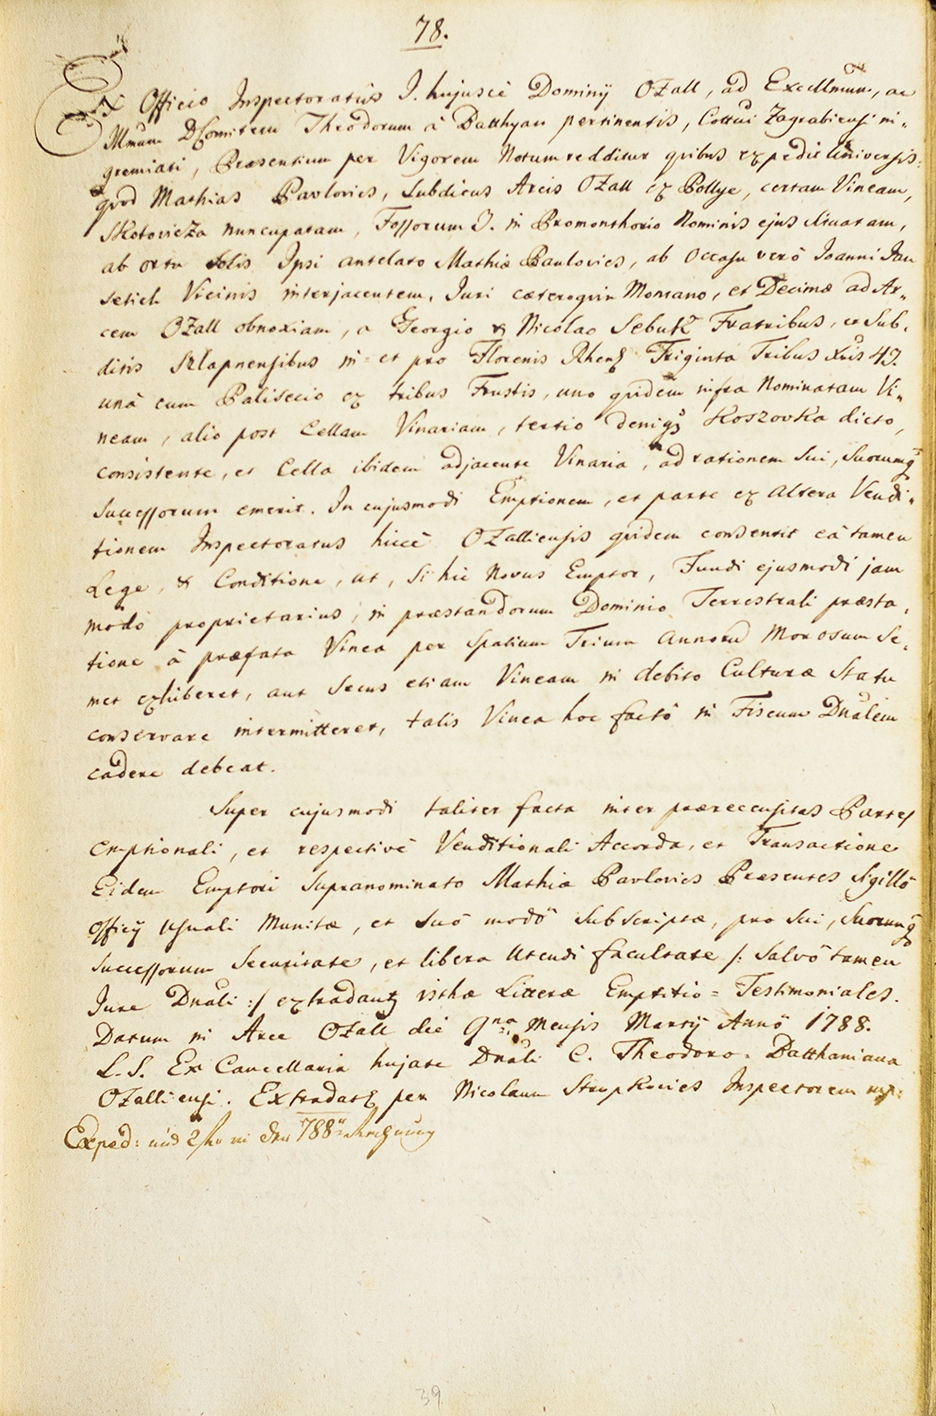 78.
Ex Officio Inspectoratûs I. hujusce Dominÿ OZall, ad Excellmum, ac
Illmum D. Comitem Theodorum à Batthyan pertinentis, Cottui Zagrabiensi in-
gremiati, Praesentium per Vigorem Notum redditur quibus expedit Universis:
quod Mathias Pavlovics, Subditus Arcis OZall ex Pollye, certam Vineam,
Skotovicza nuncupatam, Fossorum 2. in Promonthorio Nominis ejus situatam,
ab ortu Solis Ipsi antelato Mathiæ Pavlovics, ab Occasu verò Joanni Jan
setich Vicinis interjacentem, Juri cæteroquin Montano, et Decimæ ad Ar-
cem OZall obnoxiam, a Georgio & Nicolao Sebutz Fratribus, et Sub-
ditis Szlapnensibus in et pro Florenis Rhens Triginta Tribus Xris 43.
unà cum Palisecio ex tribus Frustis, uno quidem infra Nominatam Vi-
neam, alio post Cellam Vinariam, tertio deniq Koszovka dicto,
consistente, et Cella ibidem adjacente Vinaria, ad rationem Sui, Suorumq
Successorum emerit. In cujusmodi Emptionem, et parte ex altera Vendi-
tionem Inspectoratus hicce OZalliensis quidem consensit eâ tamen
Lege, & Conditione, ut, Si hic Novus Emptor, Fundi ejusmodi jam
modo proprietarius, in præstandorum Dominio Terrestrali præsta-
tione à præfata Vinea per Spatium Trium Annoru Morosum Se-
met exhiberet, aut Secus etiam Vineam in debito Culturæ Statu
conservare intermitteret, talis Vinea hoc factô in Fiscum Dnalem
cadere debeat.
Super cujusmodi taliter facta inter præreccensitas Partes
Emptionali, et respectivè Venditionali Accorda, et Transactione
Eidem Emptori Supranominato Mathiæ Pavlovics Præsentes Sigillô
Officÿ Usuali Munitæ, et Suô modô Subscriptæ, pro Sui, Suorumq
Successorum Securitate, et libera Utendi facultate /: Salvô tamen
Jure Dnali :/ extradantr isthæ Litteræ Emptitio = Testimoniales.
Datum in Arce OZall die 9na Mensis Martÿ Annô 1788.
L. S. Ex Cancellaria hujate Dnali C. Theodoro - Batthaniana
OZalliensi. Extradatr per Nicolaum Strupkovics Inspectorem mp:
Exped: 788
39